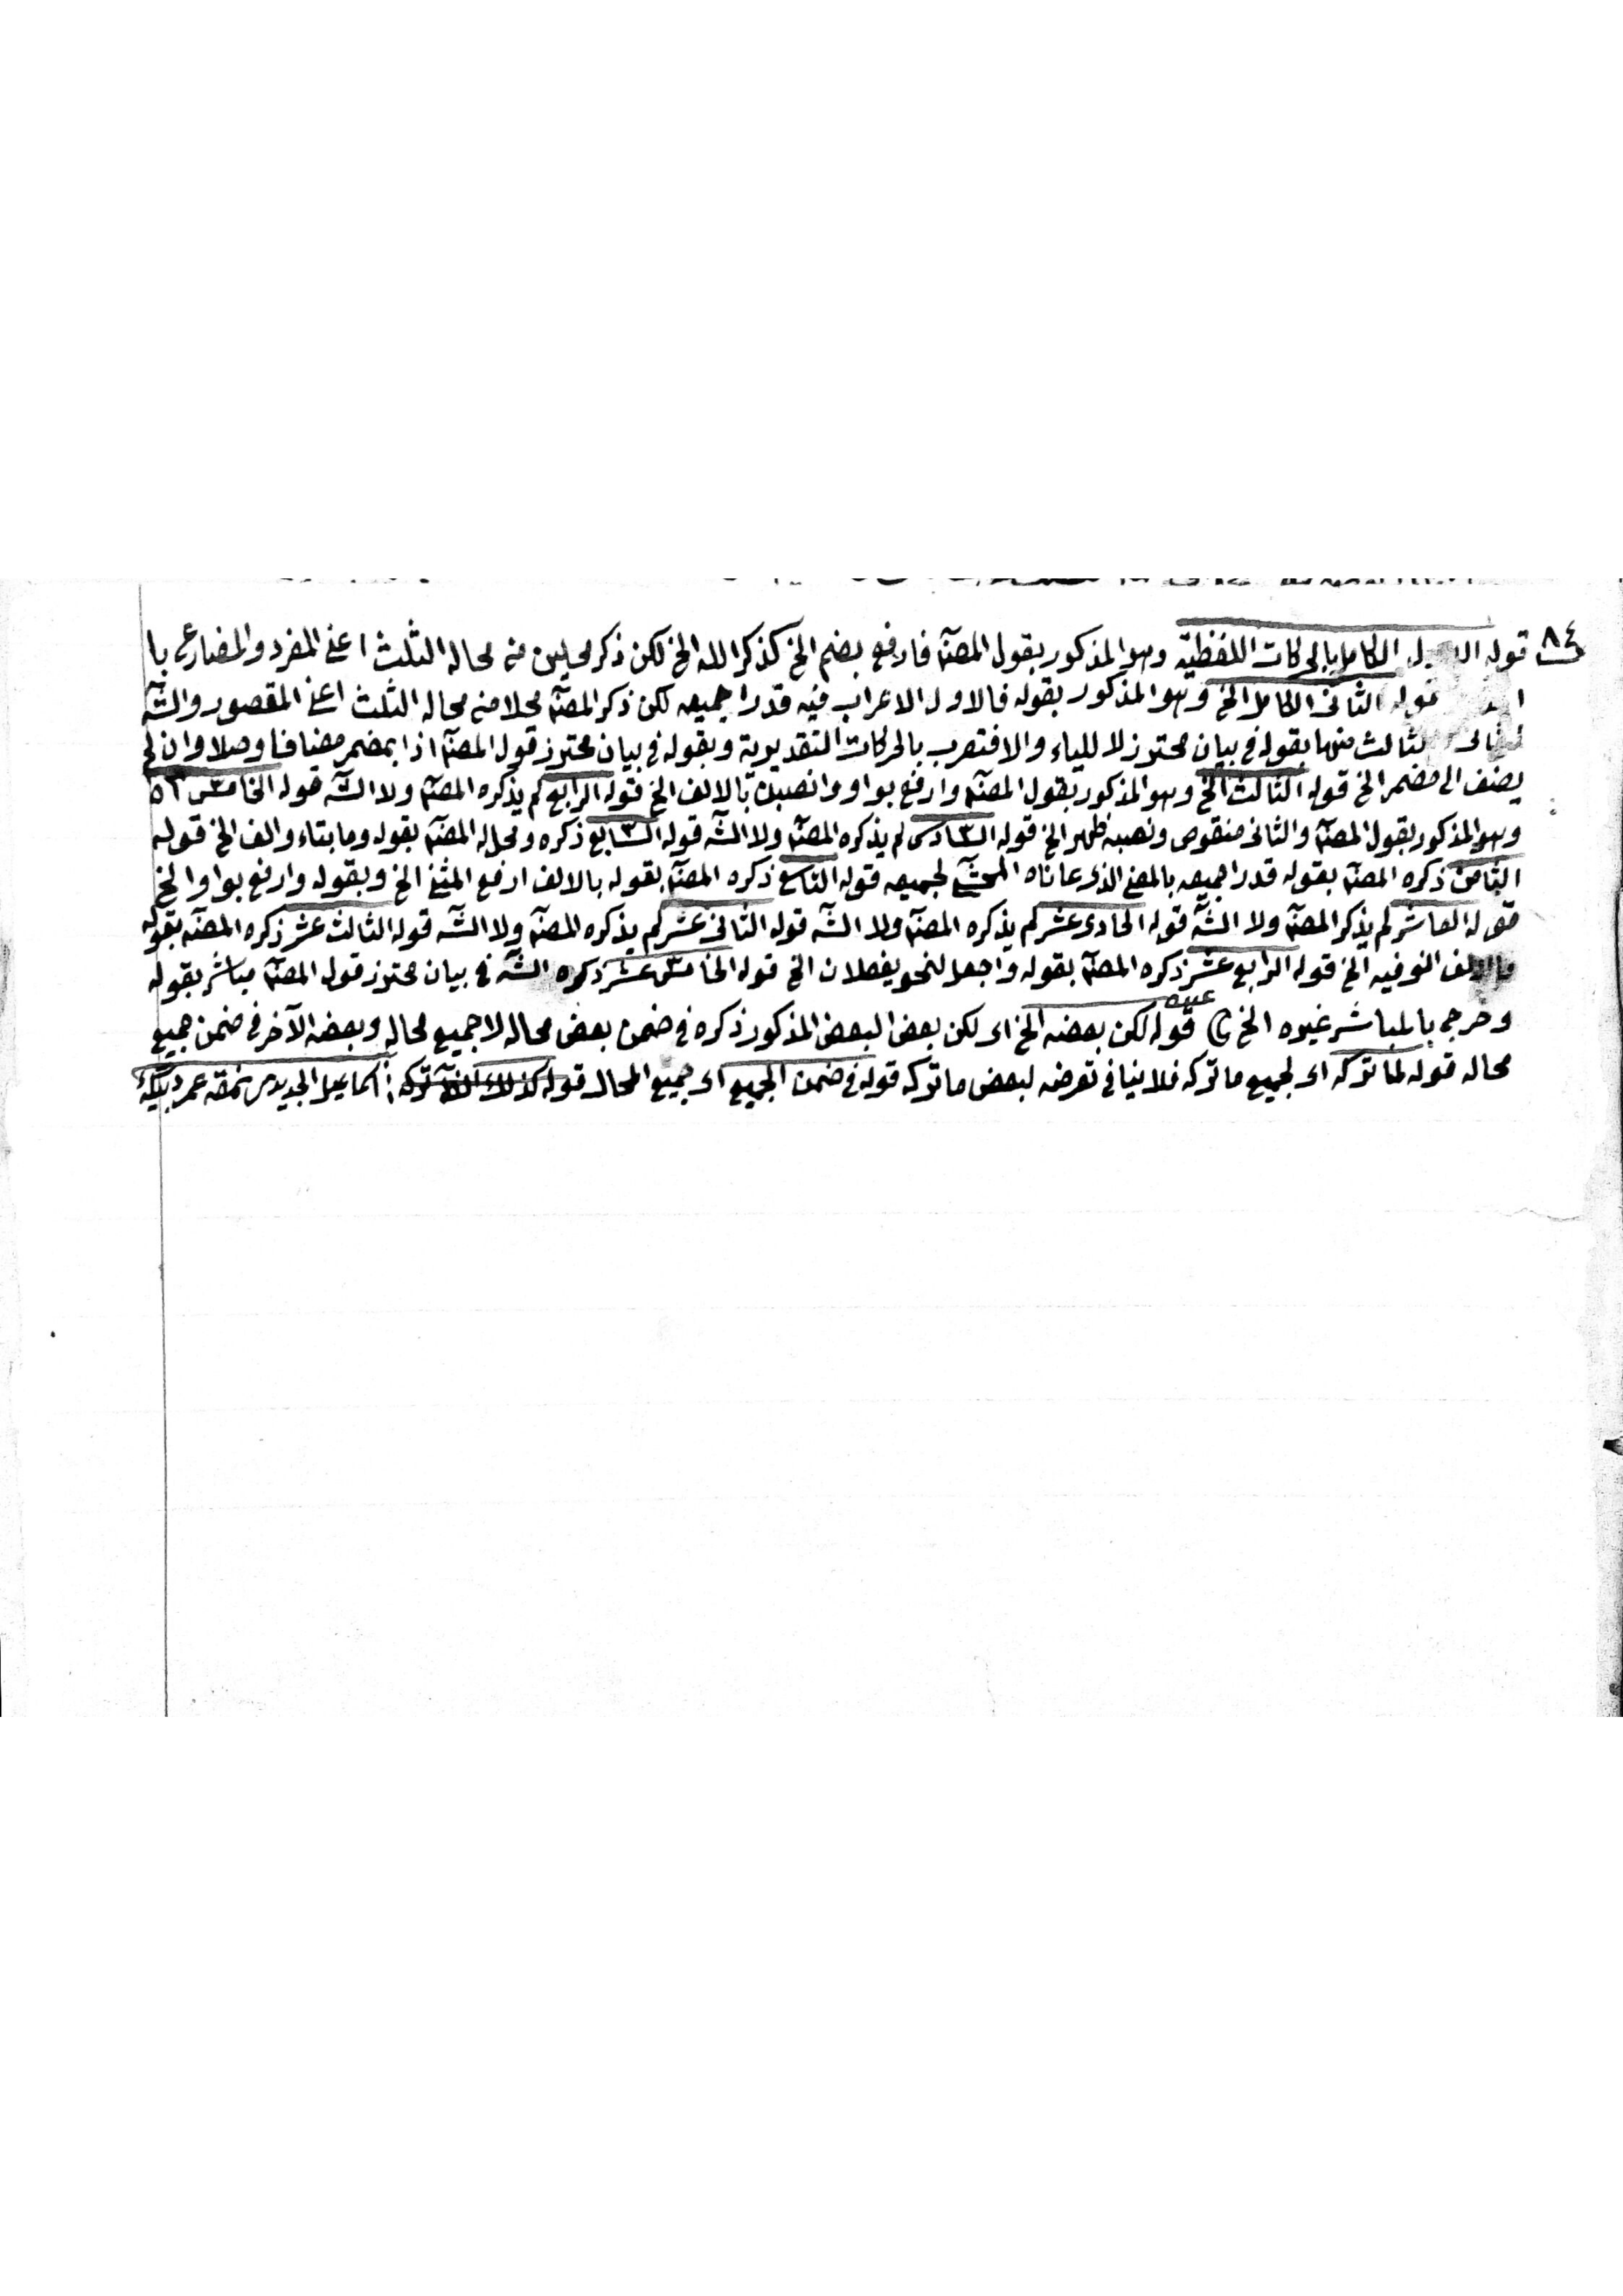 ٨٤ قوله الاول الكامل بالحركات اللفظية وهو المذكور بقول المصنه فارفع بضم الخ كذكر الله الخ لكن ذكر محلين من محاله الثلث اعنى المفرد والمضارع با
قوله الثانى الكامل الخ وهو المذكور بقوله فالاول الاعراب فيه قدرا جميعه لكن ذكر المصنه محلا من محاله الثلث اعنى المقصور والشه
الثالث منها بقوله فى بيان محترز لا للياء والا فتعرب بالحركات التقديرية وبقوله فى بيان محترز قول المصنه اذا بمضمر مضافا وصلا وان لم
يضف الى مضمر الخ قوله الثالث الخ وهو المذكور بقول المصنه وارفع بواو وانصبن بالالف الخ قوله الرابع لم يذكره المصنه ولا الشه قوله الخامس
وهو المذكور بقول المصنه والثانى منقوص ونصبه ظهر الخ قوله السادس لم يذكره المصنه ولا الشه قوله السابع ذكره ومحاله المصنه بقوله وما بتاء والف الخ قوله
الثامن ذكره المصنه بقوله قدرا جميعه بالمعنى الذى عاناه المحشى لجميعه قوله التاسع ذكره المصنه بقوله بالالف ارفع المثنى الخ وبقوله وارفع بواو الخ
قوله العاشر لم يذكر المصنه ولا الشه قوله الحادى عشر لم يذكره المصنه ولا الشه قوله الثانى عشر لم يذكره المصنه ولا الشه قوله الثالث عشر ذكره المصنه بقوله
والالف انو فيه الخ قوله الرابع عشر ذكره المصنه بقوله واجعل لنحو يفعلان الخ قوله الخامس عشر ذكره الشه فى بيان محترز قول المصنه مباشر بقوله
وخرج بالمباشر غيره الخ قوله لكن بعضه الخ اى لكن بعض البعض المذكور ذكره فى ضمن بعض محاله لا جميع محاله وبعضه الآخر فى ضمن جميع
محاله قوله لما تركه اى لجميع ما تركه فلا ينافى تعرضه لبعض ما تركه قوله فى ضمن الجميع اى جميع المحال قوله كذلك تركه